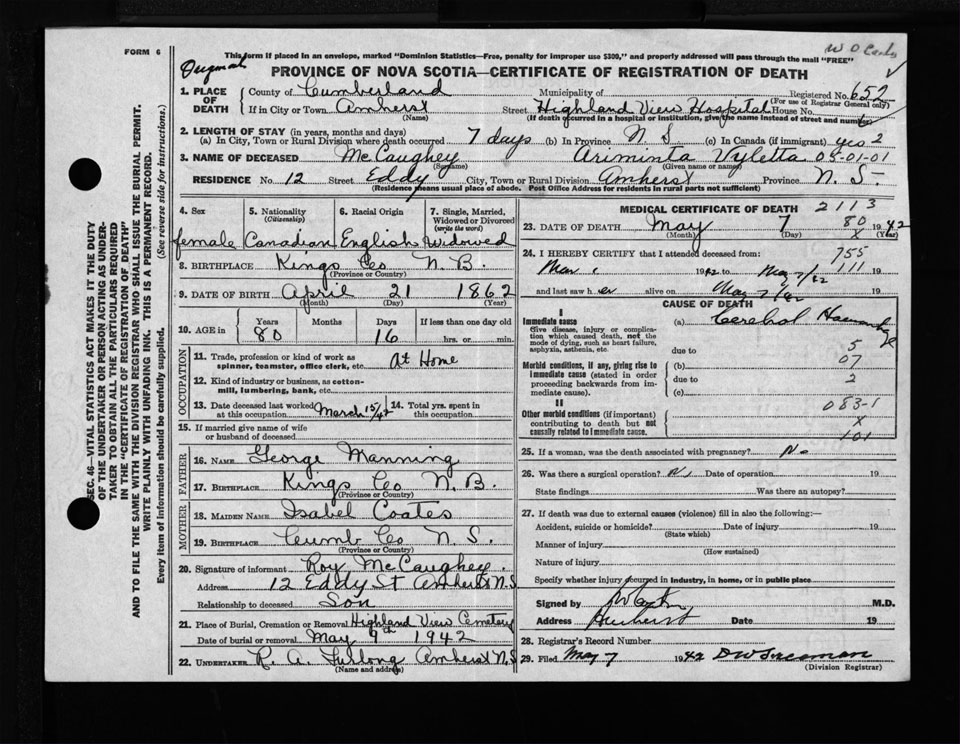 FORM 6
This form if placed in an envelope, marked "Dominion Statistics—Free, penalty for improper use $300," and properly addressed will pass through the mail "FREE"
Original
PROVINCE OF NOVA SCOTIA—CERTIFICATE OF REGISTRATION OF DEATH
1. PLACE OF DEATH County of Cumberland Municipality of Registered No. 652
(For use of Registrar General only)
If in City or Town Amherst Street Highland View Hospital House No.
(Name) (If death occurred in a hospital or institution, give the name instead of street and number)
2. LENGTH OF STAY (in years, months and days)
(a) In City, Town or Rural Division where death occurred 7 days (b) In Province N S (c) In Canada (if immigrant) yes 2
3. NAME OF DECEASED McCaughey Ariminta Vyletta 05-01-01
(Surname) (Given name or names)
RESIDENCE No. 12 Street Eddy City, Town or Rural Division Amherst Province N. S.
(Residence means usual place of abode. Post Office Address for residents in rural parts not sufficient)
SEC. 46—VITAL STATISTICS ACT MAKES IT THE DUTY
OF THE UNDERTAKER OR PERSON ACTING AS UNDER-
TAKER TO OBTAIN ALL THE PARTICULARS REQUIRED
IN THE "CERTIFICATE OF REGISTRATION OF DEATH"
AND TO FILE THE SAME WITH THE DIVISION REGISTRAR WHO SHALL ISSUE THE BURIAL PERMIT.
WRITE PLAINLY WITH UNFADING INK. THIS IS A PERMANENT RECORD.
Every item of information should be carefully supplied. (See reverse side for instructions)
4. Sex 5. Nationality (Citizenship) 6. Racial Origin 7. Single, Married, Widowed or Divorced (write the word)
female Canadian English Widowed
8. BIRTHPLACE Kings Co N.B.
(Province or Country)
9. DATE OF BIRTH April 21 1862
(Month) (Day) (Year)
10. AGE in Years Months Days If less than one day old
80 16 hrs. or min.
OCCUPATION
11. Trade, profession or kind of work as spinner, teamster, office clerk, etc. At Home
12. Kind of industry or business, as cotton-mill, lumbering, bank, etc.
13. Date deceased last worked at this occupation March 15/42 14. Total yrs. spent in this occupation.
15. If married give name of wife or husband of deceased
FATHER
16. NAME George Manning
17. BIRTHPLACE Kings Co N.B.
(Province or Country)
MOTHER
18. MAIDEN NAME Isabel Coates
19. BIRTHPLACE Cumb Co N S.
(Province or Country)
20. Signature of informant Roy McCaughey.
Address 12 Eddy St Amherst N.S
Relationship to deceased Son
21. Place of Burial, Cremation or Removal Highland View Cemetary
Date of burial or removal May 9th 1942
22. UNDERTAKER R. A. Furlong Amherst N.S
(Name and address)
MEDICAL CERTIFICATE OF DEATH 2113
23. DATE OF DEATH May 7 80 1942
(Month) (Day) x (Year)
24. I HEREBY CERTIFY that I attended deceased from: 755
Mar 1942 to May 7/42 111 19
and last saw her alive on May 7/42 19
CAUSE OF DEATH
I
Immediate cause (a) Cerebral
(Give disease, injury or complication which caused death, not the mode of dying, such as heart failure, asphyxia, asthenia, etc.
due to 5
Morbid conditions, if any, giving rise to immediate cause (stated in order proceeding backwards from immediate cause). (b) 07
due to 2
(c)
II
Other morbid conditions (if important) contributing to death but not causally related to immediate cause.
083-1
x
101
25. If a woman, was the death associated with pregnancy? No
26. Was there a surgical operation? N. Date of operation 19
State findings Was there an autopsy?
27. If death was due to external causes (violence) fill in also the following:—
Accident, suicide or homicide? Date of injury 19
(State which)
Manner of injury
(How sustained)
Nature of injury
Specify whether injury occurred in industry, in home, or in public place
Signed by M.D.
Address Amherst Date 19
28. Registrar's Record Number
29. Filed May 7 1942
(Division Registrar)